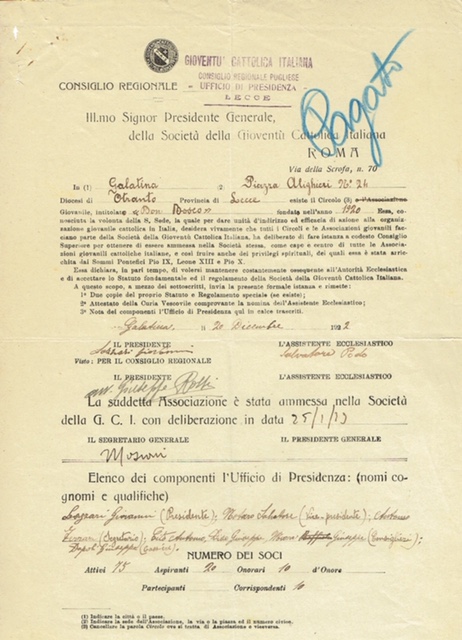 GIOVENTU' CATTOLICA ITALIANA
CONSIGLIO REGIONALE PUGLIESE
CONSIGLIO REGIONALE - UFFICIO DI PRESIDENZA -
LECCE
Pagato
Ill.mo Signor Presidente Generale,
della Società della Gioventù Cattolica Italiana
ROMA
Via della Scrofa, n. 70
In (1) Galatina 2 Piazza Alighieri N° 24
Diocesi di Otranto Provincia di Lecce esiste il Circolo (3) o l'Associazione
Giovanile, intitolato « Don Bosco » fondato nell'anno 1920 Essa, co-
nosciuta la volontà della S. Sede, la quale per dare unità d'indirizzo ed efficacia di azione alla organiz-
zazione giovanile cattolica in Italia, desidera vivamente che tutti i Circoli e le Associazioni giovanili fac-
ciano parte della Società della Gioventù Cattolica Italiana, ha deliberato di fare istanza a codesto Consiglio
Superiore per ottenere di essere ammessa nella Società stessa, come capo e centro di tutte le Associa-
zioni giovanili cattoliche italiane, e così fruire anche dei privilegi spirituali, dei quali essa è stata arric-
chita dai Sommi Pontefici Pio IX, Leone XIII e Pio X.
Essa dichiara, in pari tempo, di volersi mantenere costantemente ossequente all'Autorità Ecclesiastica
e di accettare lo Statuto fondamentale ed il regolamento della Società della Gioventù Cattolica Italiana.
A questo scopo, a mezzo dei sottoscritti, invia la presente formale istanza e rimette:
1° Due copie del proprio Statuto e Regolamento speciale (se esiste);
2° Attestato della Curia Vescovile comprovante la nomina dell'Assistente Ecclesiastico;
3° Nota dei componenti l'Ufficio di Presidenza qui in calce trascritti.
Galatina li 20 Dicembre 1922
IL PRESIDENTE L'ASSISTENTE ECCLESIASTICO
Salvatore
Visto: PER IL CONSIGLIO REGIONALE
IL PRESIDENTE L'ASSISTENTE ECCLESIASTICO
Giuseppe
La suddetta Associazione è stata ammessa nella Società
della G. C. I. con deliberazione in data 25/1/23
IL SEGRETARIO GENERALE IL PRESIDENTE GENERALE
Elenco dei componenti l'Ufficio di Presidenza: (nomi co-
gnomi e qualifiche)
Giovanni (Presidente); Notaro Salvatore (Vice-presidente); Antonio
(Segretario); Antonio, Giuseppe, Giuseppe (Consiglieri);
Giuseppe (cassiere).
NUMERO DEI SOCI
Attivi 75 Aspiranti 20 Onorari 10 d'Onore
Partecipanti Corrispondenti 10
(1) Indicare la città o il paese.
(2) Indicare la sede dell'Associazione, la via o la piazza ed il numero civico.
(3) Cancellare la parola Circolo ove si tratta di Associazione e viceversa.